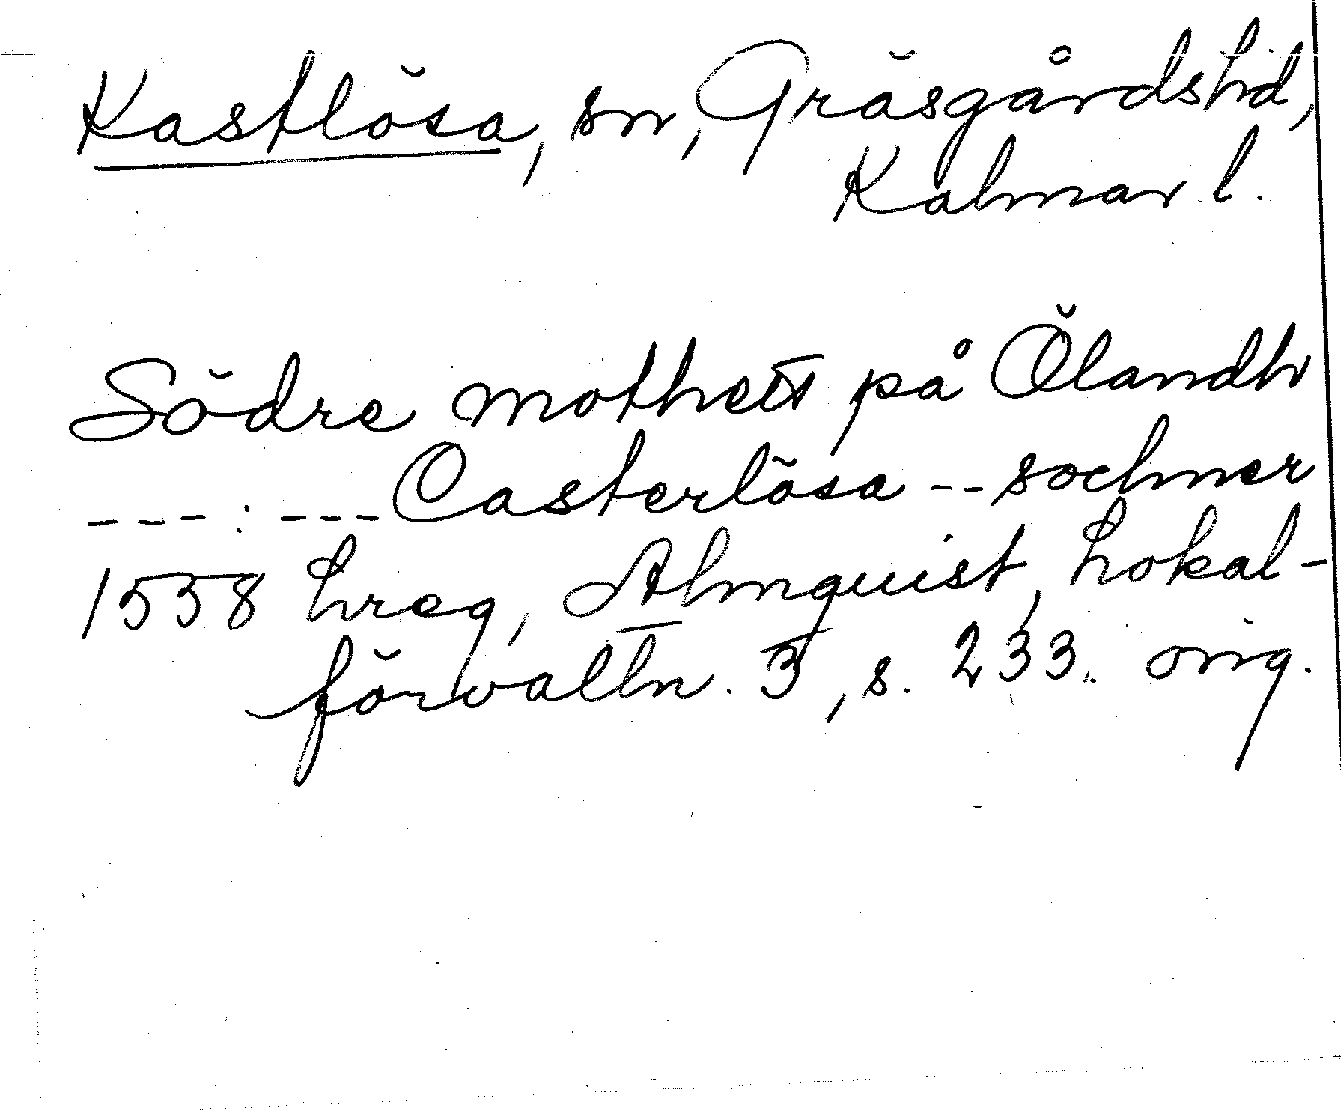 Kastlösa, sn, Gräsgårds hd,
Kalmar l.
Södre mothett på Ölandh
---:---Casterlösa--sochner
1558 hreg, Almquist, Lokal-
förvaltn. 3, s. 233. orig.